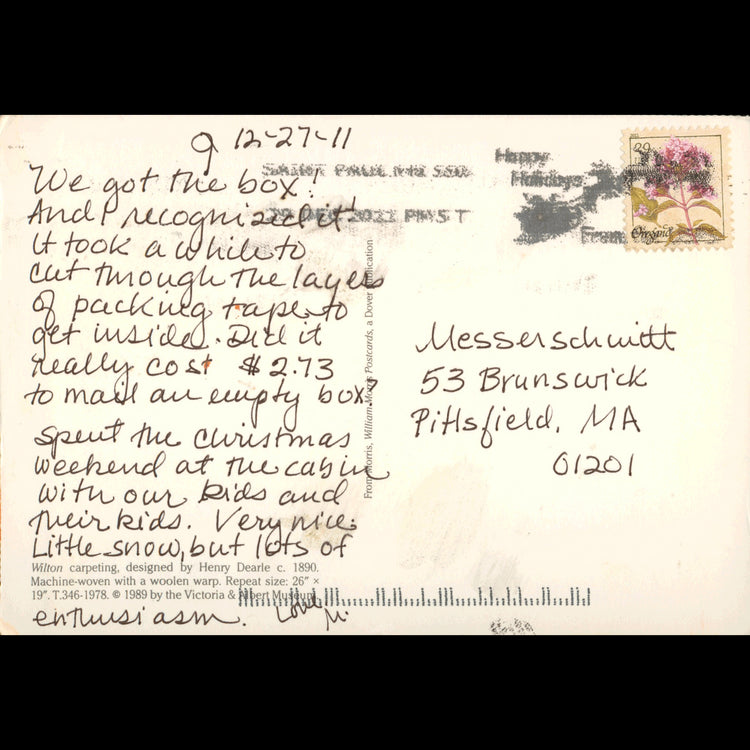 12-27-11
We got the box!
And I recognized it!
It took a while to
cut through the layers
of packing tape to
get inside. Did it
really cost $2.73
to mail an empty box?
Spent the Christmas
weekend at the cabin
with our kids and
their kids. Very nice.
Little snow, but lots of
Wilton carpeting, designed by Henry Dearle c. 1890.
Machine-woven with a woolen warp. Repeat size: 26" ×
19". T.346-1978. © 1989 by the Victoria & Albert Museum.
enthusiasm. Love, M.
From Morris, William Morris Postcards, a Dover publication
SAINT PAUL MN 550
27 DEC 2011 PM 5 T
Happy
Holidays
From
29
Messerschmitt
53 Brunswick
Pittsfield, MA
01201